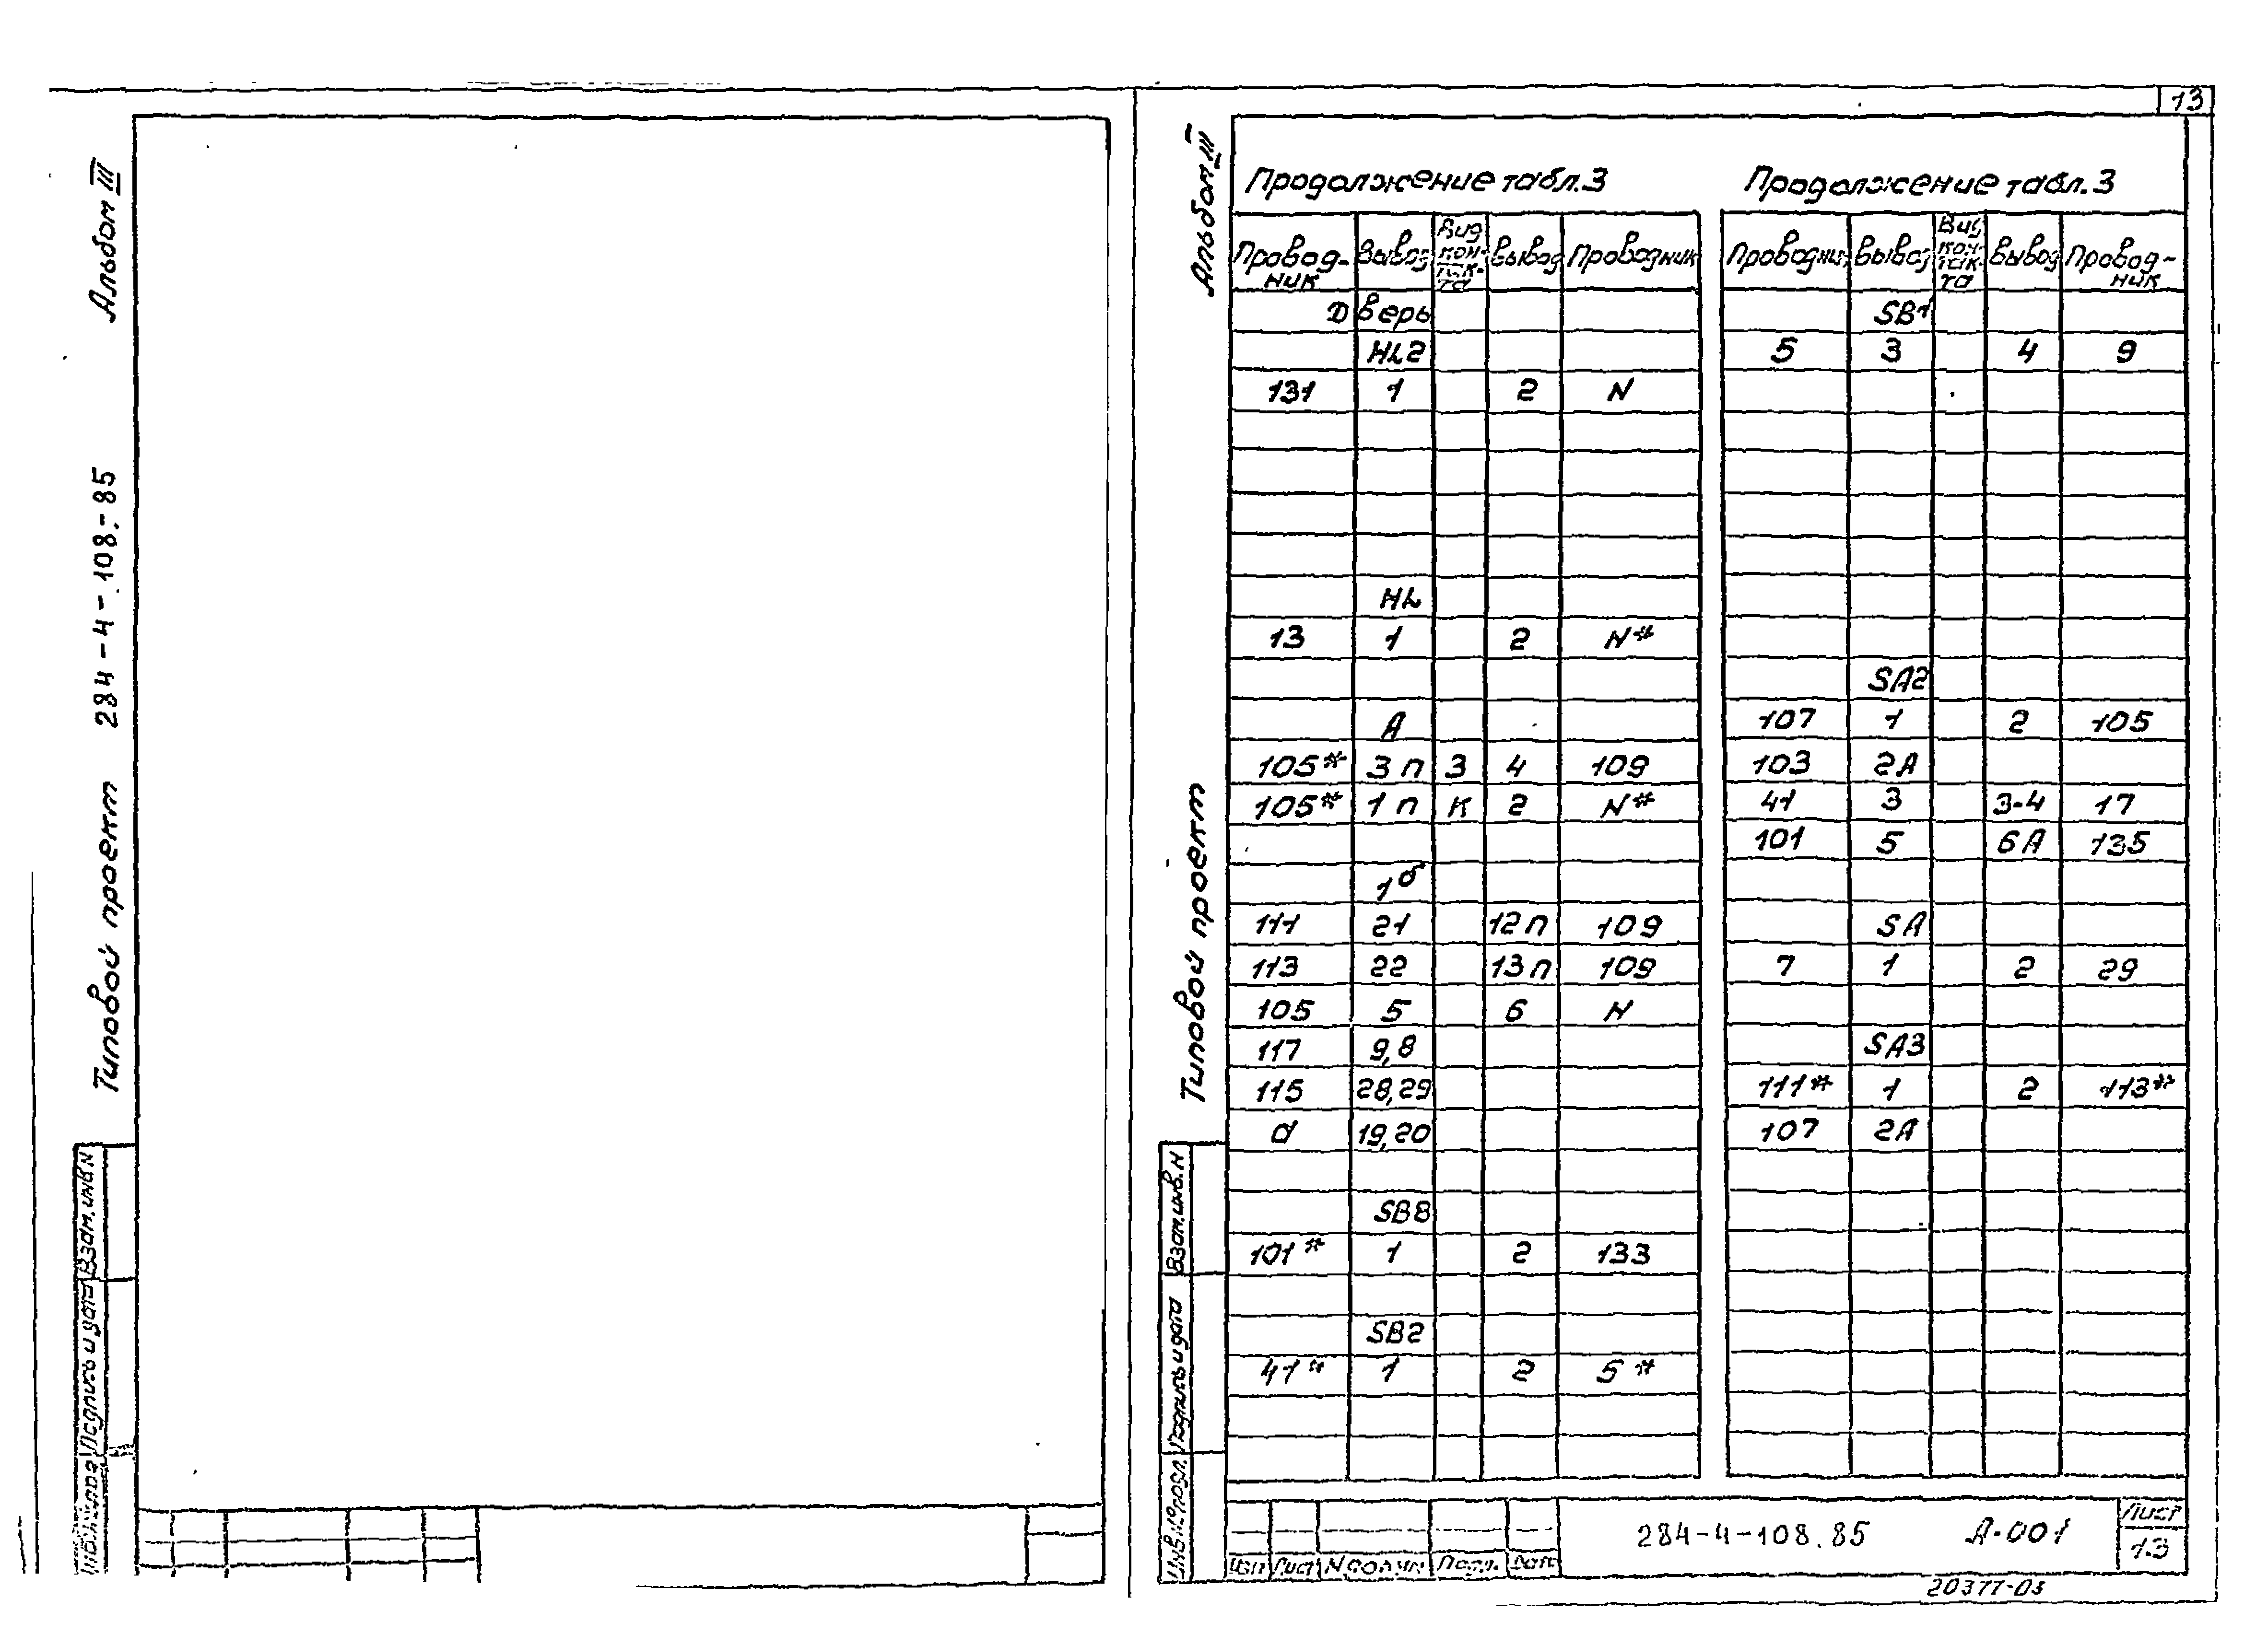 13
Альбом III
Типовой проект 284-4-108.-85
Взам.инв.N
Подпись и дата
Альбом III
Типовой проект
Взам.инв.N
Подпись и дата
Инв.N подл.
Продолжение табл.3
Провод-ник Вывод Вид кон-так-та Вывод Проводник
Дверь
HL2
131 1 2 N
HL
13 1 2 N*
A
105* 3п 3 4 109
105* 1п К 2 N*
1б
111 21 12п 109
113 22 13п 109
105 5 6 N
117 9,8
115 28,29
d 19,20
SB8
101* 1 2 133
SB2
41* 1 2 5*
Продолжение табл.3
Проводник Вывод Вид кон-так-та Вывод Провод-ник
SB1
5 3 4 9
SA2
107 1 2 105
103 2А
41 3 3-4 17
101 5 6А 135
SA
7 1 2 29
SA3
111* 1 2 113*
107 2А
Лист Подп. Дата
284-4-108.85 А-001
Лист
13
20377-03